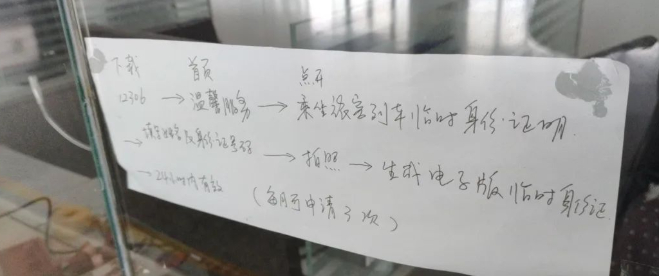 下载 首页 点开
12306 → 温馨服务 → 乘坐旅客列车临时身份证明
→ 填写姓名及身份证号码 → 拍照 → 生成电子版临时身份证
→ 24小时内有效 (每月可申请3次)